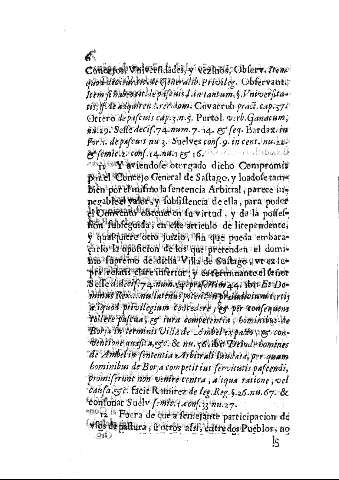 6
Concejos, Universidades, y vezinos, Observ. Item
quod dominus de Generalib. Privileg. Observant.
Item si habeat de pascuis l. in tantum. §. Universita-
tis, ff. de adquiren. rer. dom. Covarrub. pract. cap. 37.
Ortero de pascuis cap. 5. Portol. verb. Ganatum,
nu. 19. Selle decif. 74. num. 7. 14. & seq. Bardax. in
For. 1. de pascuis nu 3. Suelves conf. 9. in cent. nu. 22.
& semic. 2. conf. 14. nu. 15 & 16.
11 Y aviendose otorgado dicho Compromis
por el Concejo General de Sastago, y loadose tam-
bien por el mismo la sentencia Arbitral, parece in-
negable el valor, y subsistencia de ella, para poder
el Convento obtener en su virtud, y de la posses-
sion subseguida, en este articulo de litependente,
y qualquiere otro juizio, sin que pueda embara-
çarlo la oposicion de los que pretenden el domi-
nio supremo de dicha Villa de Sastago, ut ex su-
pre relatis clare infertur; y es terminante el señor
Selle decif. 74. num. 24. 44. ibi: Et Do-
minus Rex in præiudicium tertij
aliquod privilegium concedere, & per consequens
tollere pascua, & iura competentia, hominibus de
Borja in terminis Villæ de Ambel ex pacto, & con-
ventione annexa, &c. & nu. 36. ibi: Dicti homines
de Ambel in sententia Arbitrali laudata, per quam
hominibus de Borja competit ius servitutis pascendi,
promiserunt non venire contra, aliqua ratione, vel
causa, &c. facit Ramirez de leg. Reg. §. 26. nu. 67. &
consonat Suelv. semic. 1. conf. 33. nu. 27.
12 Fuera de que a semejante participacion de
vios de pastura, ù otros assi, entre dos Pueblos, no
ls